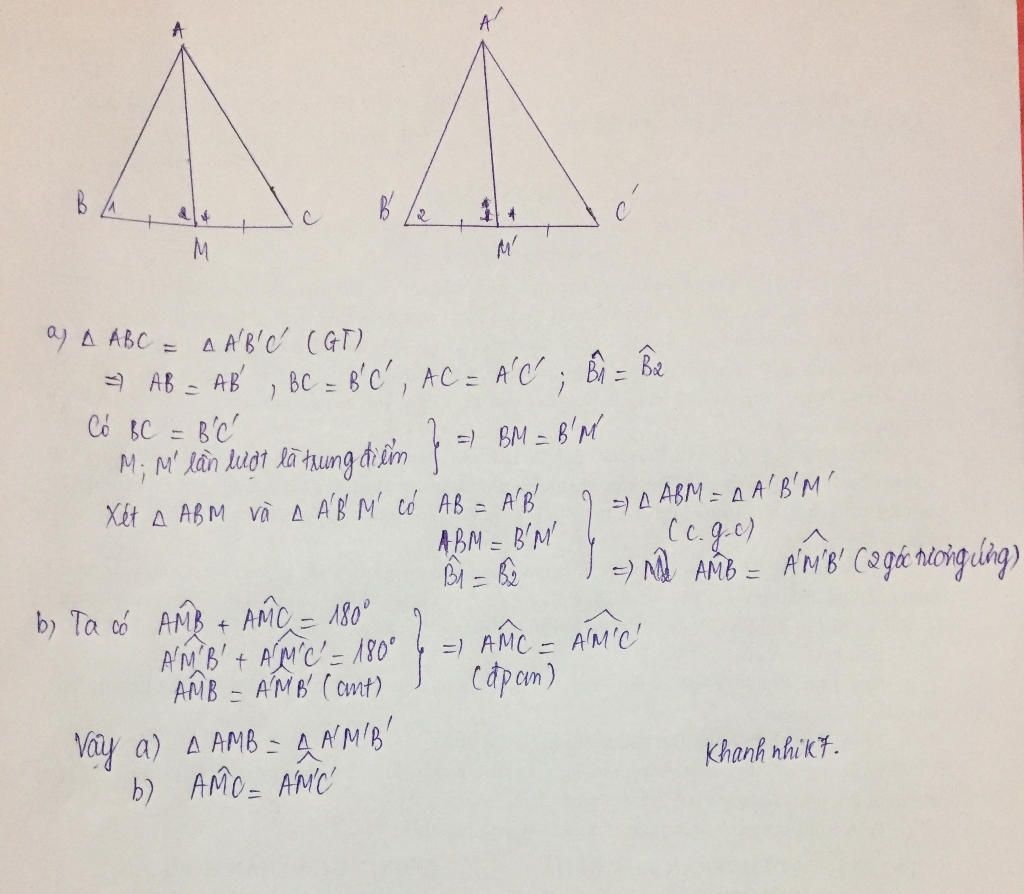 A A'
B 1 2 1 C B' 2 1 1 C'
M M'
a) Δ ABC = Δ A'B'C' (GT)
=> AB = AB' , BC = B'C' , AC = A'C' ; B̂1 = B̂2
Có BC = B'C'
M; M' lần lượt là trung điểm } => BM = B'M'
Xét Δ ABM và Δ A'B'M' có AB = A'B' } => Δ ABM = Δ A'B'M'
BM = B'M' (c.g.c)
B̂1 = B̂2 => AM̂B = A'M̂'B' (2 góc tương ứng)
b) Ta có AM̂B + AM̂C = 180°
A'M̂'B' + A'M̂'C' = 180° } => AM̂C = A'M̂'C'
AM̂B = A'M̂B' (cmt) (đpcm)
Vậy a) Δ AMB = Δ A'M'B'
b) AM̂C = A'M̂'C'
Khanhnhik7.